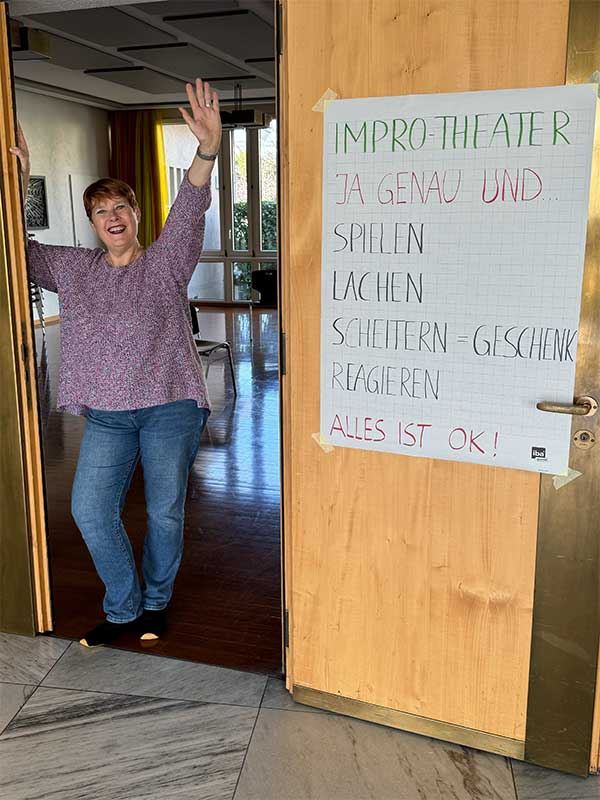 IMPRO-THEATER
JA GENAU UND...
SPIELEN
LACHEN
SCHEITERN = GESCHENK
REAGIEREN
ALLES IST OK!
iba